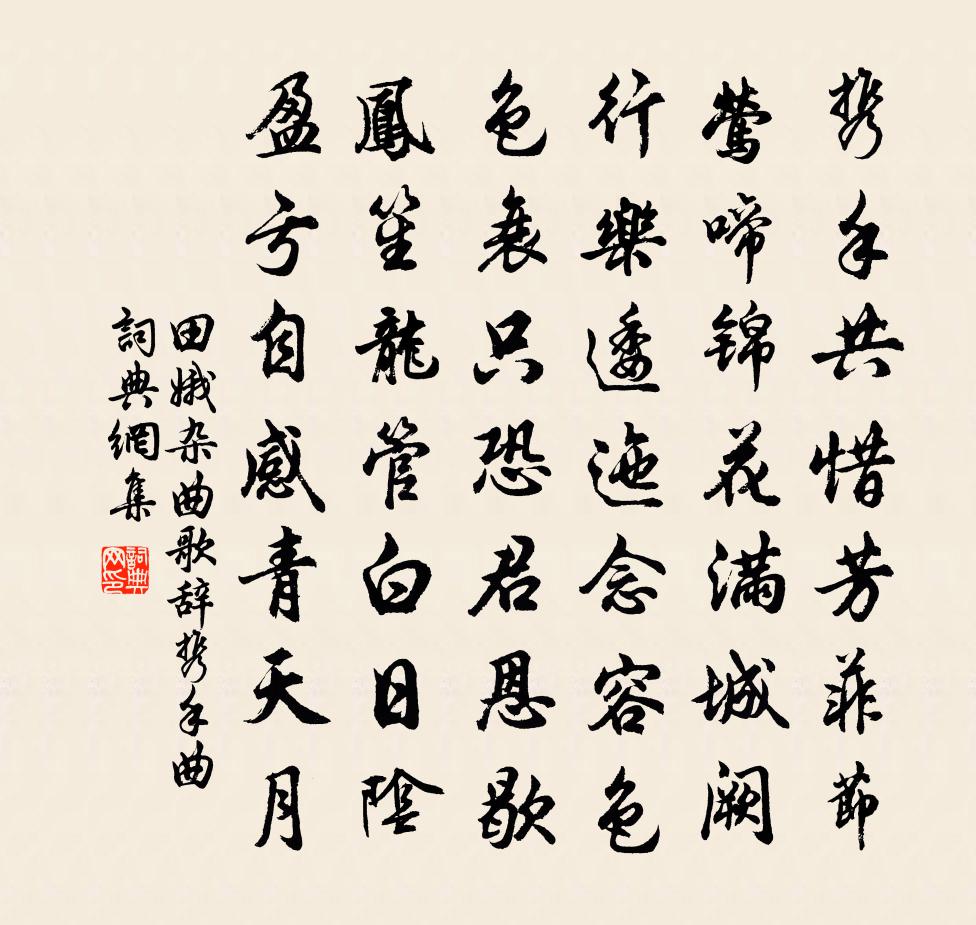 携手共惜芳菲節
鶯啼锦花满城阙
行樂逶迤念容色
色衰只恐君恩歇
鳳笙龍管白日陰
盈亏自感青天月
田娥杂曲歌辞携手曲
詞典網集
詞典网印